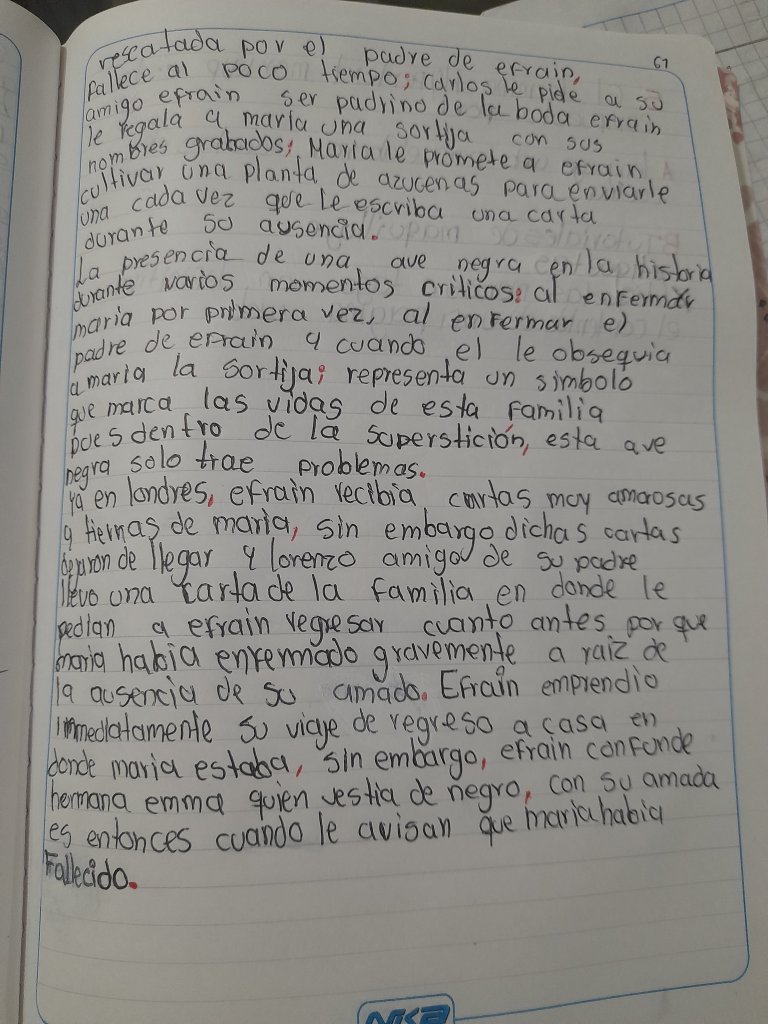 61
rescatada por el padre de efrain,
fallece al poco tiempo; Carlos le pide a su
amigo efrain ser padrino de la boda efrain
le regala a maria una sortija con sus
nombres grabados; Maria le promete a efrain
cultivar una planta de azucenas para enviarle
una cada vez que le escriba una carta
durante su ausencia.
La presencia de una ave negra en la historia
durante varios momentos criticos: al enfermar
maria por primera vez, al enfermar el
padre de efrain y cuando el le obsequia
a maria la sortija; representa un simbolo
que marca las vidas de esta familia
pues dentro de la superstición, esta ave
negra solo trae problemas.
Ya en londres, efrain recibia cartas muy amorosas
y tiernas de maria, sin embargo dichas cartas
dejaron de llegar y lorenzo amigo de su padre
llevo una carta de la familia en donde le
pedian a efrain regresar cuanto antes por que
maria habia enfermado gravemente a raiz de
la ausencia de su amado. Efrain emprendio
inmediatamente su viaje de regreso a casa en
donde maria estaba, sin embargo, efrain confunde
hermana emma quien vestia de negro, con su amada
es entonces cuando le avisan que maria habia
Fallecido.